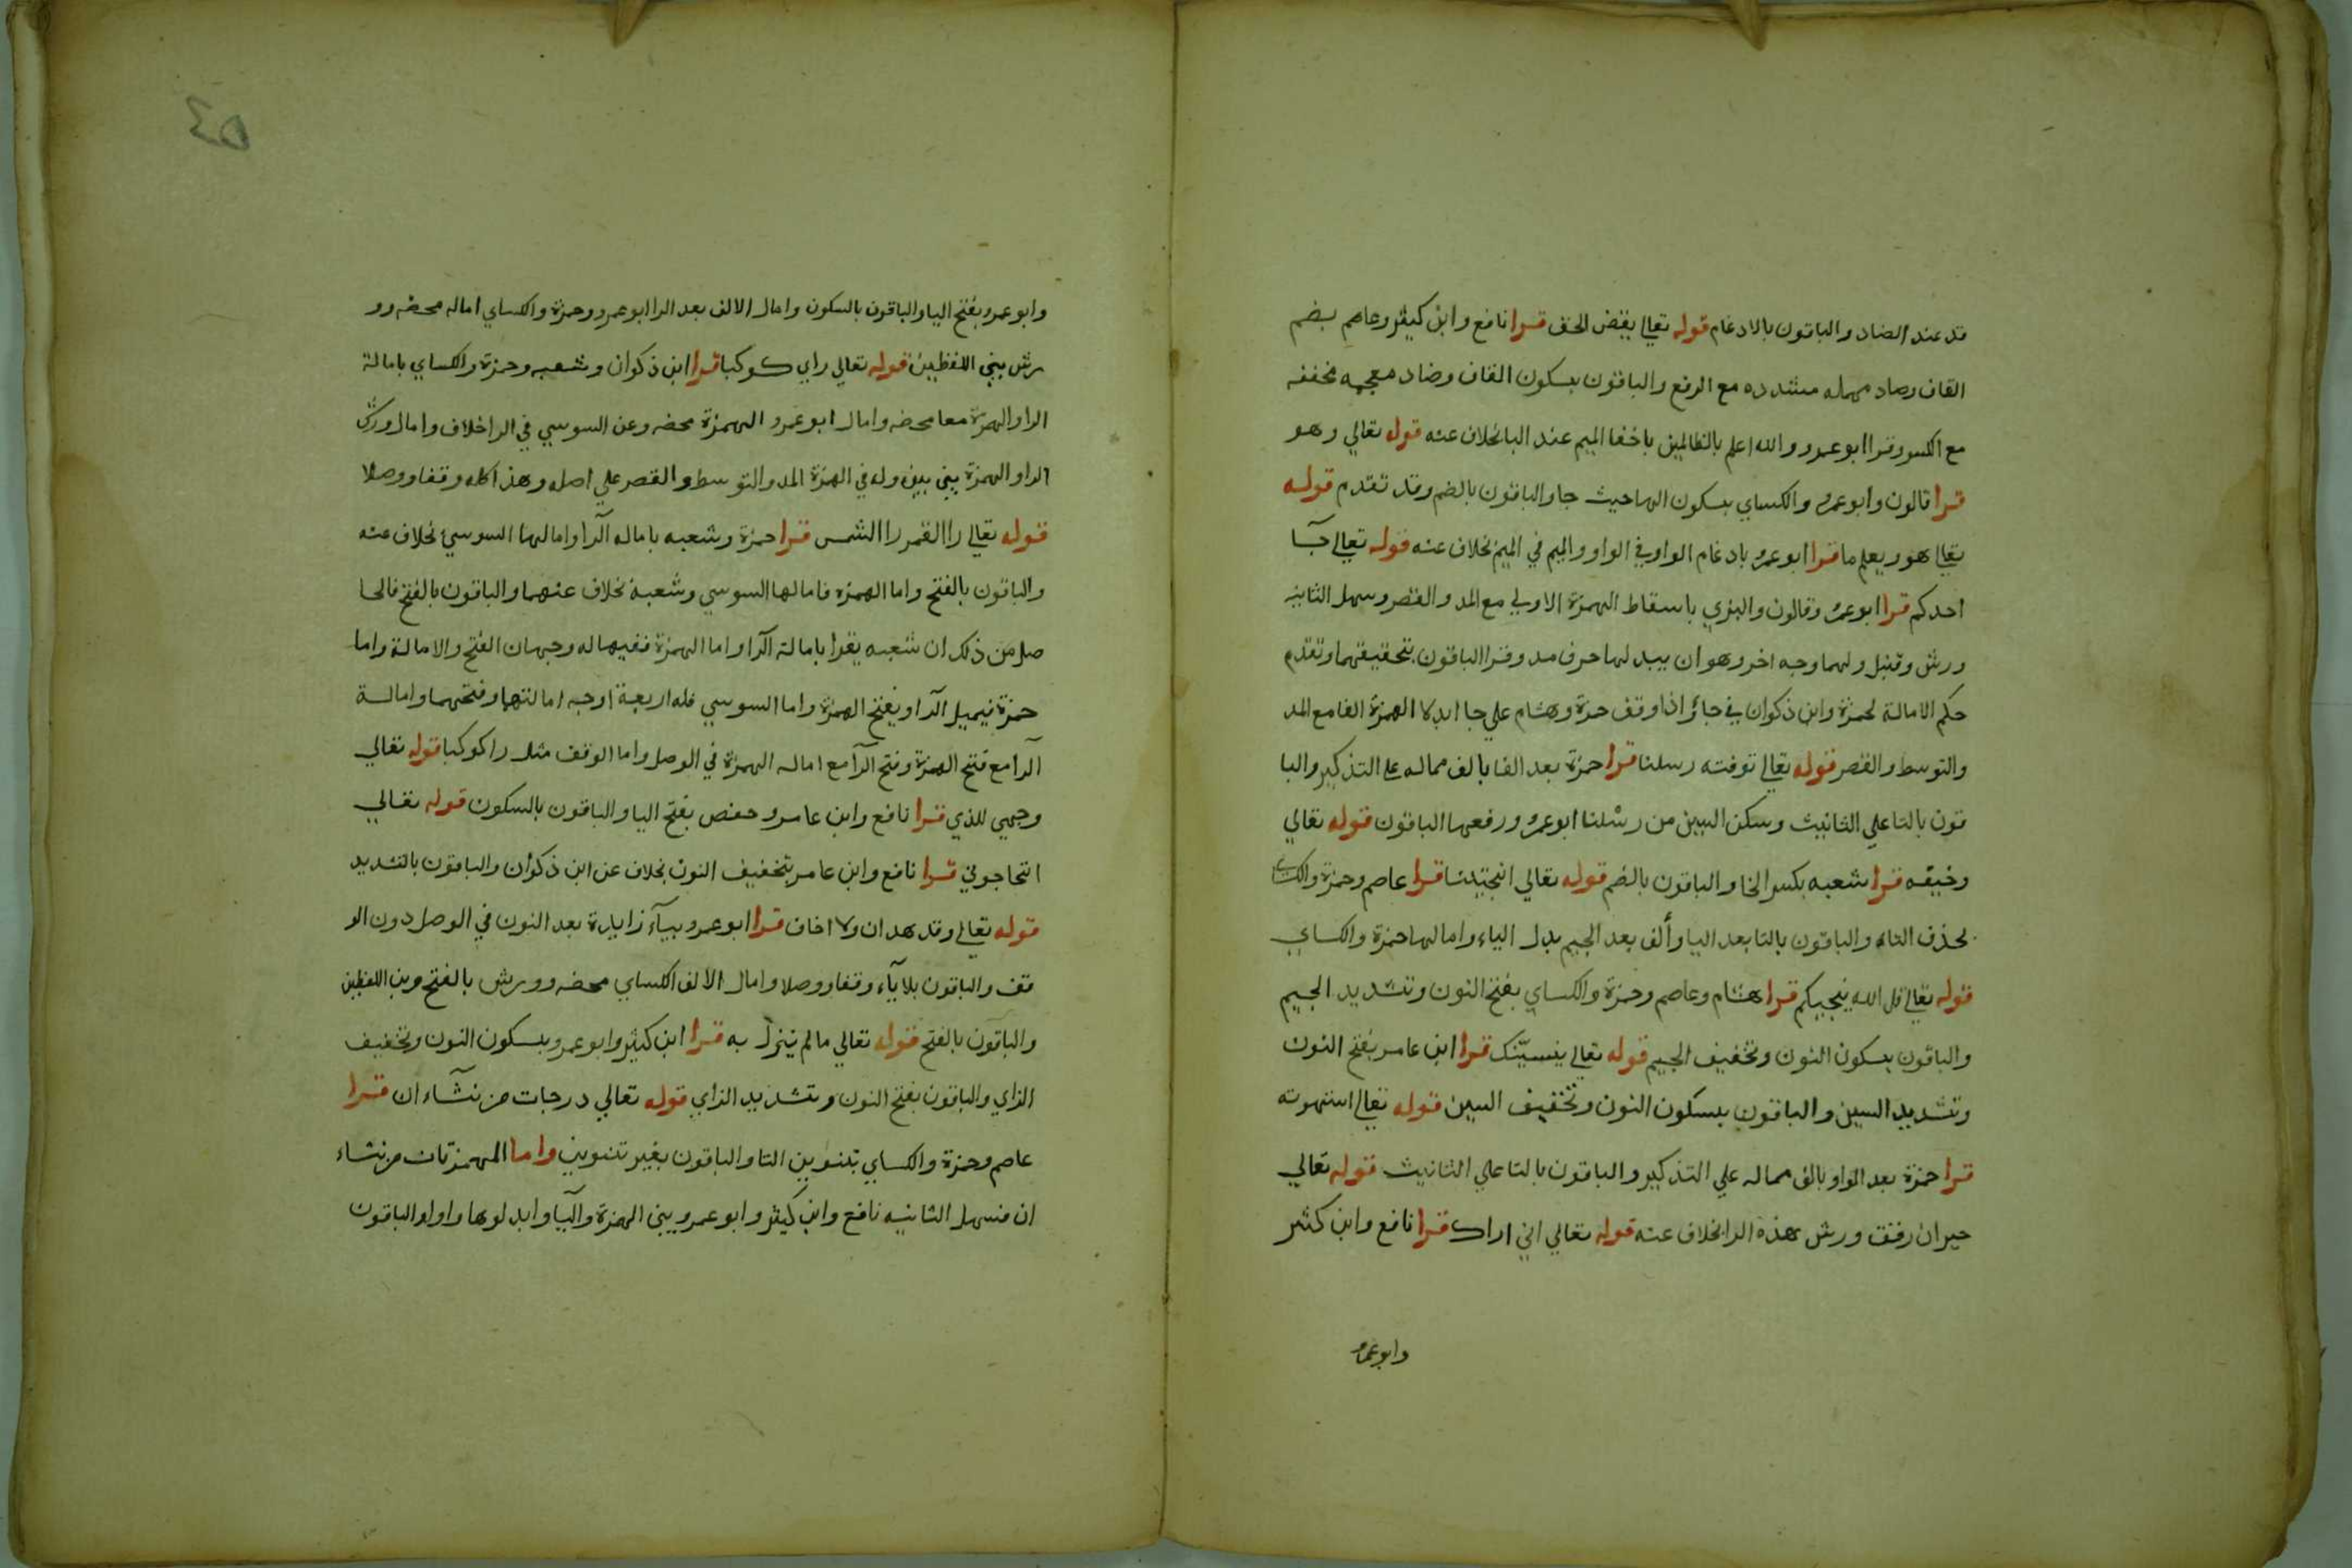 قد عند الضاد والباقون بالادغام قوله تعالي يقض الحق قرا نافع وابن كثير وعاصم بضم
القاف وصاد مهمله مشدده مع الرفع والباقون بسكون القاف وضاد معجمه مخففه
مع الكسر وقرا ابو عمرو والله اعلم بالظالمين باخفا الميم عند البا بخلاف عنه قوله تعالي وهو
قرا قالون وابو عمرو والكساي بسكون الها حيث جا والباقون بالضم وقد تقدم قوله
تعالي هو ويعلم ما قرا ابو عمرو بادغام الواو في الواو والميم في الميم بخلاف عنه قوله تعالي جآ
احدكم قرا ابو عمرو وقالون والبزي باسقاط الهمزة الاولي مع المد والقصر وسهل الثانيه
ورش وقنبل ولهما وجه اخر وهو ان يبدلها حرف مد وقرا الباقون بتحقيقهما وتقدم
حكم الامالة لحمزة وابن ذكوان في جا واذا وقف حمزة وهشام علي جا ابدلا الهمزة الفا مع المد
والتوسط والقصر قوله تعالي توفته رسلنا قرا حمزة بعد الفا بالف مماله علي التذكير والبا
قون بالتا علي التانيث وسكن السين من رسلنا ابو عمرو ورفعها الباقون قوله تعالي
وخيفه قرا شعبه بكسر الخا والباقون بالضم قوله تعالي انجيتنا قرا عاصم وحمزة والكساي
بحذف التاء والباقون بالتا بعد اليا وألف بعد الجيم بدل الياء وامالها حمزة والكساي
قوله تعالي قل الله ينجيكم قرا هشام وعاصم وحمزة والكساي بفتح النون وتشديد الجيم
والباقون بسكون النون وتخفيف الجيم قوله تعالي ينسينّك قرا ابن عامر بفتح النون
وتشديد السين والباقون بسكون النون وتخفيف السين قوله تعالي استهوته
قرا حمزة بعد الواو بالف مماله علي التذكير والباقون بالتا علي التانيث قوله تعالي
حيران رقق ورش هذه الرا بخلاف عنه قوله تعالي اني اراك قرا نافع وابن كثير
وابو عمرو
٥٤
وابو عمرو بفتح اليا والباقون بالسكون وامال الالف بعد الرا ابو عمرو وحمزة والكساي اماله محضه وو
رش بين اللفظين قوله تعالي راي كوكبا قرا ابن ذكوان وشعبه وحمزة والكساي بامالة
الرا والهمزة معا محضه وامال ابو عمرو الهمزة محضه وعن السوسي في الرا خلاف وامال ورش
الرا والهمزة بين بين وله في الهمزة المد والتوسط والقصر علي اصله وهذا كله وقفا ووصلا
قوله تعالي را القمر را الشمس قرا حمزة وشعبه باماله الرآ وامالها السوسي بخلاف عنه
والباقون بالفتح واما الهمزه فامالها السوسي وشعبة بخلاف عنهما والباقون بالفتح فالحا
صل من ذلك ان شعبه يقرا بامالة الرآ واما الهمزة ففيها له وجهان الفتح والامالة واما
حمزة فيميل الرآ ويفتح الهمزة واما السوسي فله اربعة اوجه امالتهما وفتحهما وامالة
الرآ مع فتح الهمزة وفتح الرآ مع اماله الهمزة في الوصل واما الوقف مثل را كوكبا قوله تعالي
وجهي للذي قرا نافع وابن عامر وحفص بفتح اليا والباقون بالسكون قوله تعالي
اتحاجوني قرا نافع وابن عامر بتخفيف النون بخلاف عن ابن ذكوان والباقون بالتشديد
قوله تعالي وقد هدان ولا اخاف قرا ابو عمرو بيآء زايدة بعد النون في الوصل دون الو
قف والباقون بلا يآء وقفا ووصلا وامال الالف الكساي محضه وورش بالفتح وبين اللفظين
والباقون بالفتح قوله تعالي مالم ينزل به قرا ابن كثير وابو عمرو بسكون النون وتخفيف
الزاي والباقون بفتح النون وتشديد الزاي قوله تعالي درجات من نشآء ان قرا
عاصم وحمزة والكساي بتنوين التا والباقون بغير تنوين واما الهمزتان من نشاء
ان فسهل الثانيه نافع وابن كثير وابو عمرو بين الهمزة واليآ وابدلوها واوا والباقون